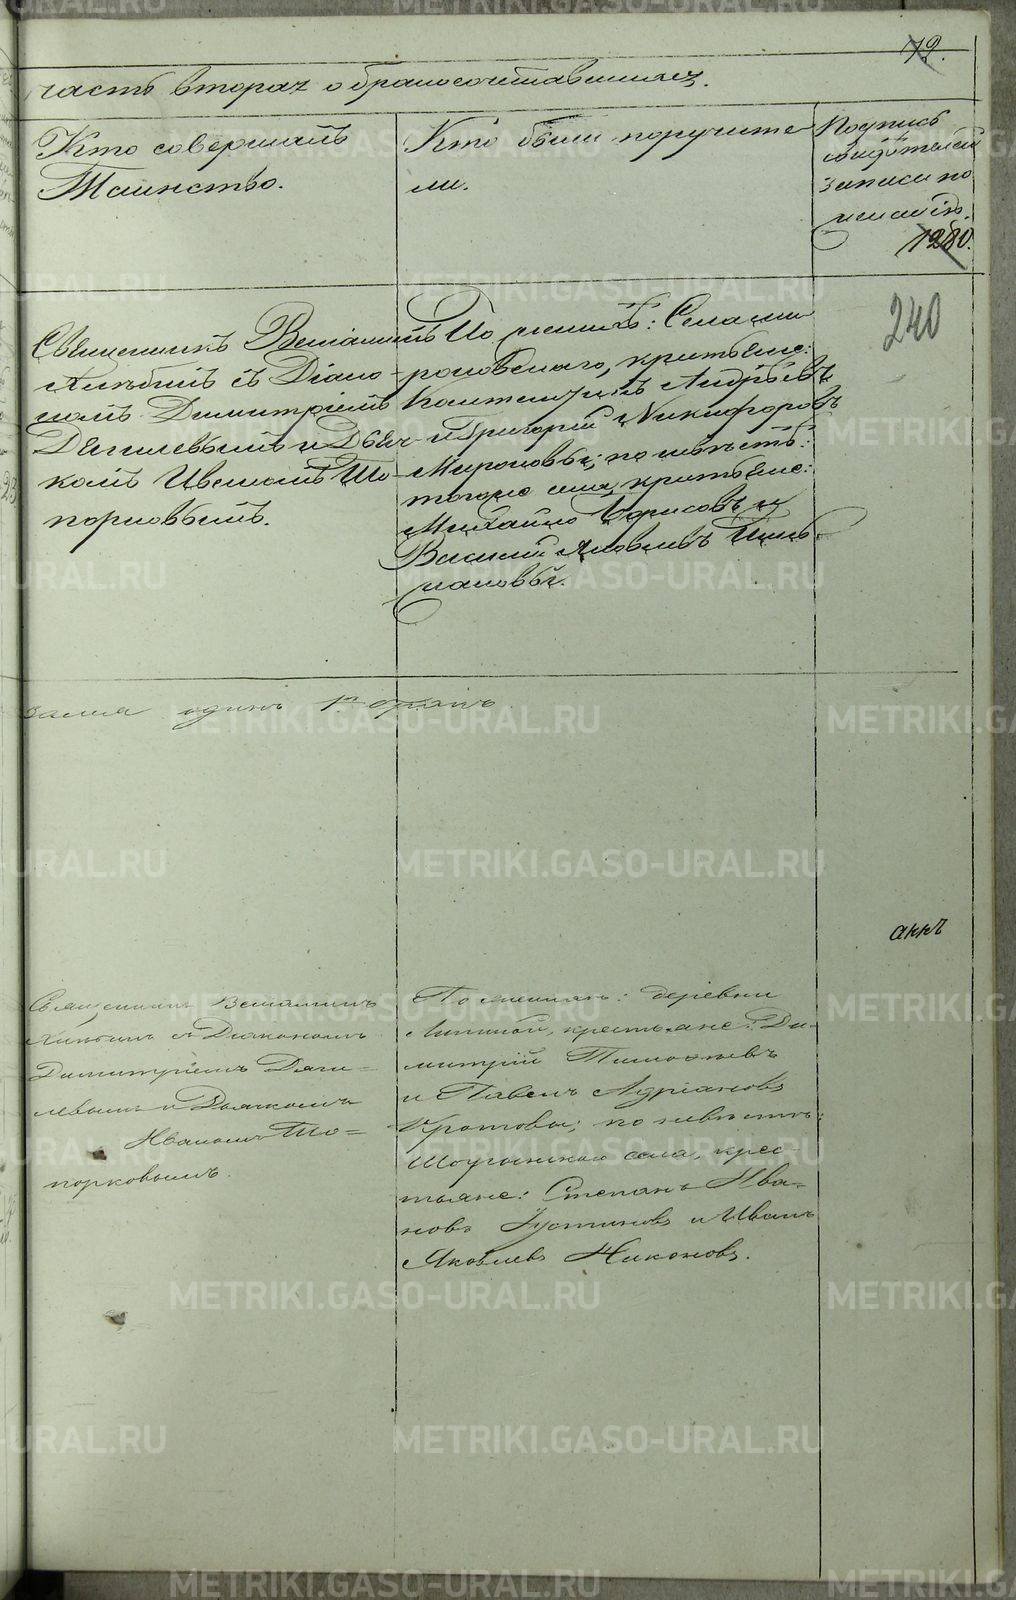 72.
часть вторая о бракосочетавшихся.
Кто совершалъ
Таинство.
Кто были поручите
ли.
Подпись
свидѣтелей
записи по
желанію.
1280.
240
Священникъ Веніаминъ
съ Діако-
номъ Димитріемъ
Дягилевымъ и Дьяч-
комъ Иваномъ То-
порковымъ.
По женихѣ: Села
крестьяне:
Андрѣевъ
и Григорій Никифоровъ
Мироновы; по невѣстѣ:
тогоже села, крестьяне:
Михайло Борисовъ и
Василій Яковлевъ
одинъ бракъ
аккъ
Священникъ Веніаминъ
съ Діакономъ
Димитріемъ Дяги-
левымъ и Дьячкомъ
Иваномъ То-
порковымъ.
По женихѣ: деревни
крестьяне: Ди-
митрій Тимофеевъ
и Павелъ Адріановъ
Кротовы; по невѣстѣ:
села, крес-
тьяне: Степанъ Ива-
новъ Устиновъ и Иванъ
Яковлевъ Никоновъ.
METRIKI.GASO-URAL.RU